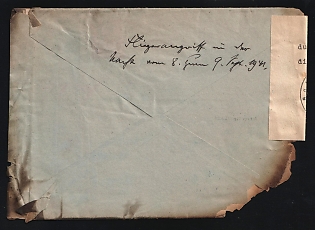 Fliegerangriff in der
Nacht vom 8. zum 9. Sept. 1941.
di